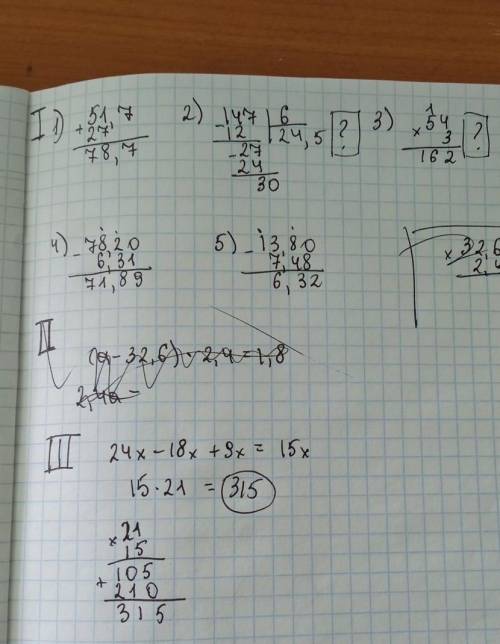 I 1) 51,7
+ 27,
78,7
2) 147 | 6
- 12 24,5 ?
- 27
24
30
3) 1
54
× 3
162 ?
4) 78,20
- 6,31
71,89
5) 13,80
- 7,48
6,32
× 32,6
2,4
II
(a - 32,6) · 2,4 = 1,8
2,4a =
III 24x - 18x + 9x = 15x
15 · 21 = 315
× 21
15
+ 105
210
315